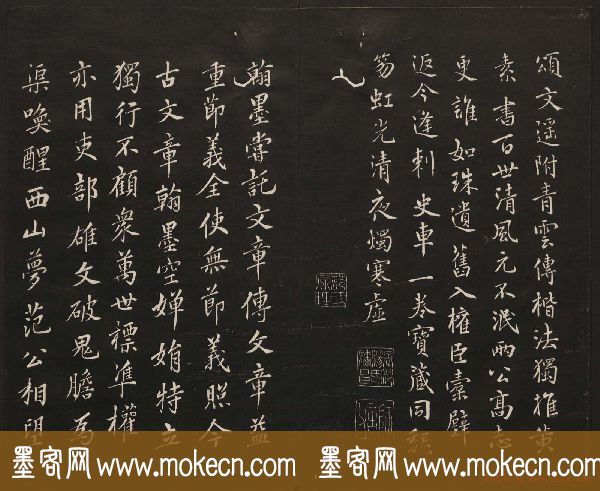 頌文遥附青雲傳楷法獨推黃
素書百世清風元不泯兩公高志
更誰如珠遺舊入權臣橐璧
返今逢刺史車一卷寶藏同魏
笏虹光清夜燭寒虛
翰墨嘗託文章傳文章益
重節義全使無節義照今
古文章翰墨空嬋娟特立
獨行不顧衆萬世標準權
亦用吏部雄文破鬼膽爲
渠喚醒西山夢范公相望
墨客网www.mokecn.com 墨客网www.mokecn.com